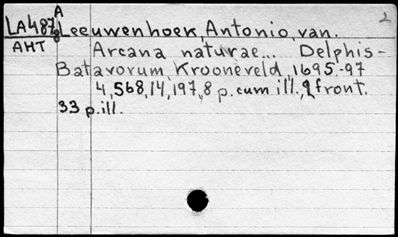 2
LA487 A 8 Leeuwenhoek, Antonio, van.
AHT Arcana naturae... Delphis-
Batavorum, Krooneveld, 1695-97
4, 568, 14, 197, 8 p. cum ill., front.
33 p. ill.